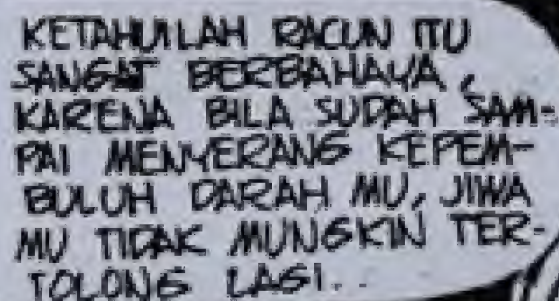 KETAHUILAH RACUN ITU
SANGAT BERBAHAYA,
KARENA BILA SUDAH SAM-
PAI MENYERANG KEPEM-
BULUH DARAH MU, JIWA
MU TIDAK MUNGKIN TER-
TOLONG LAGI..